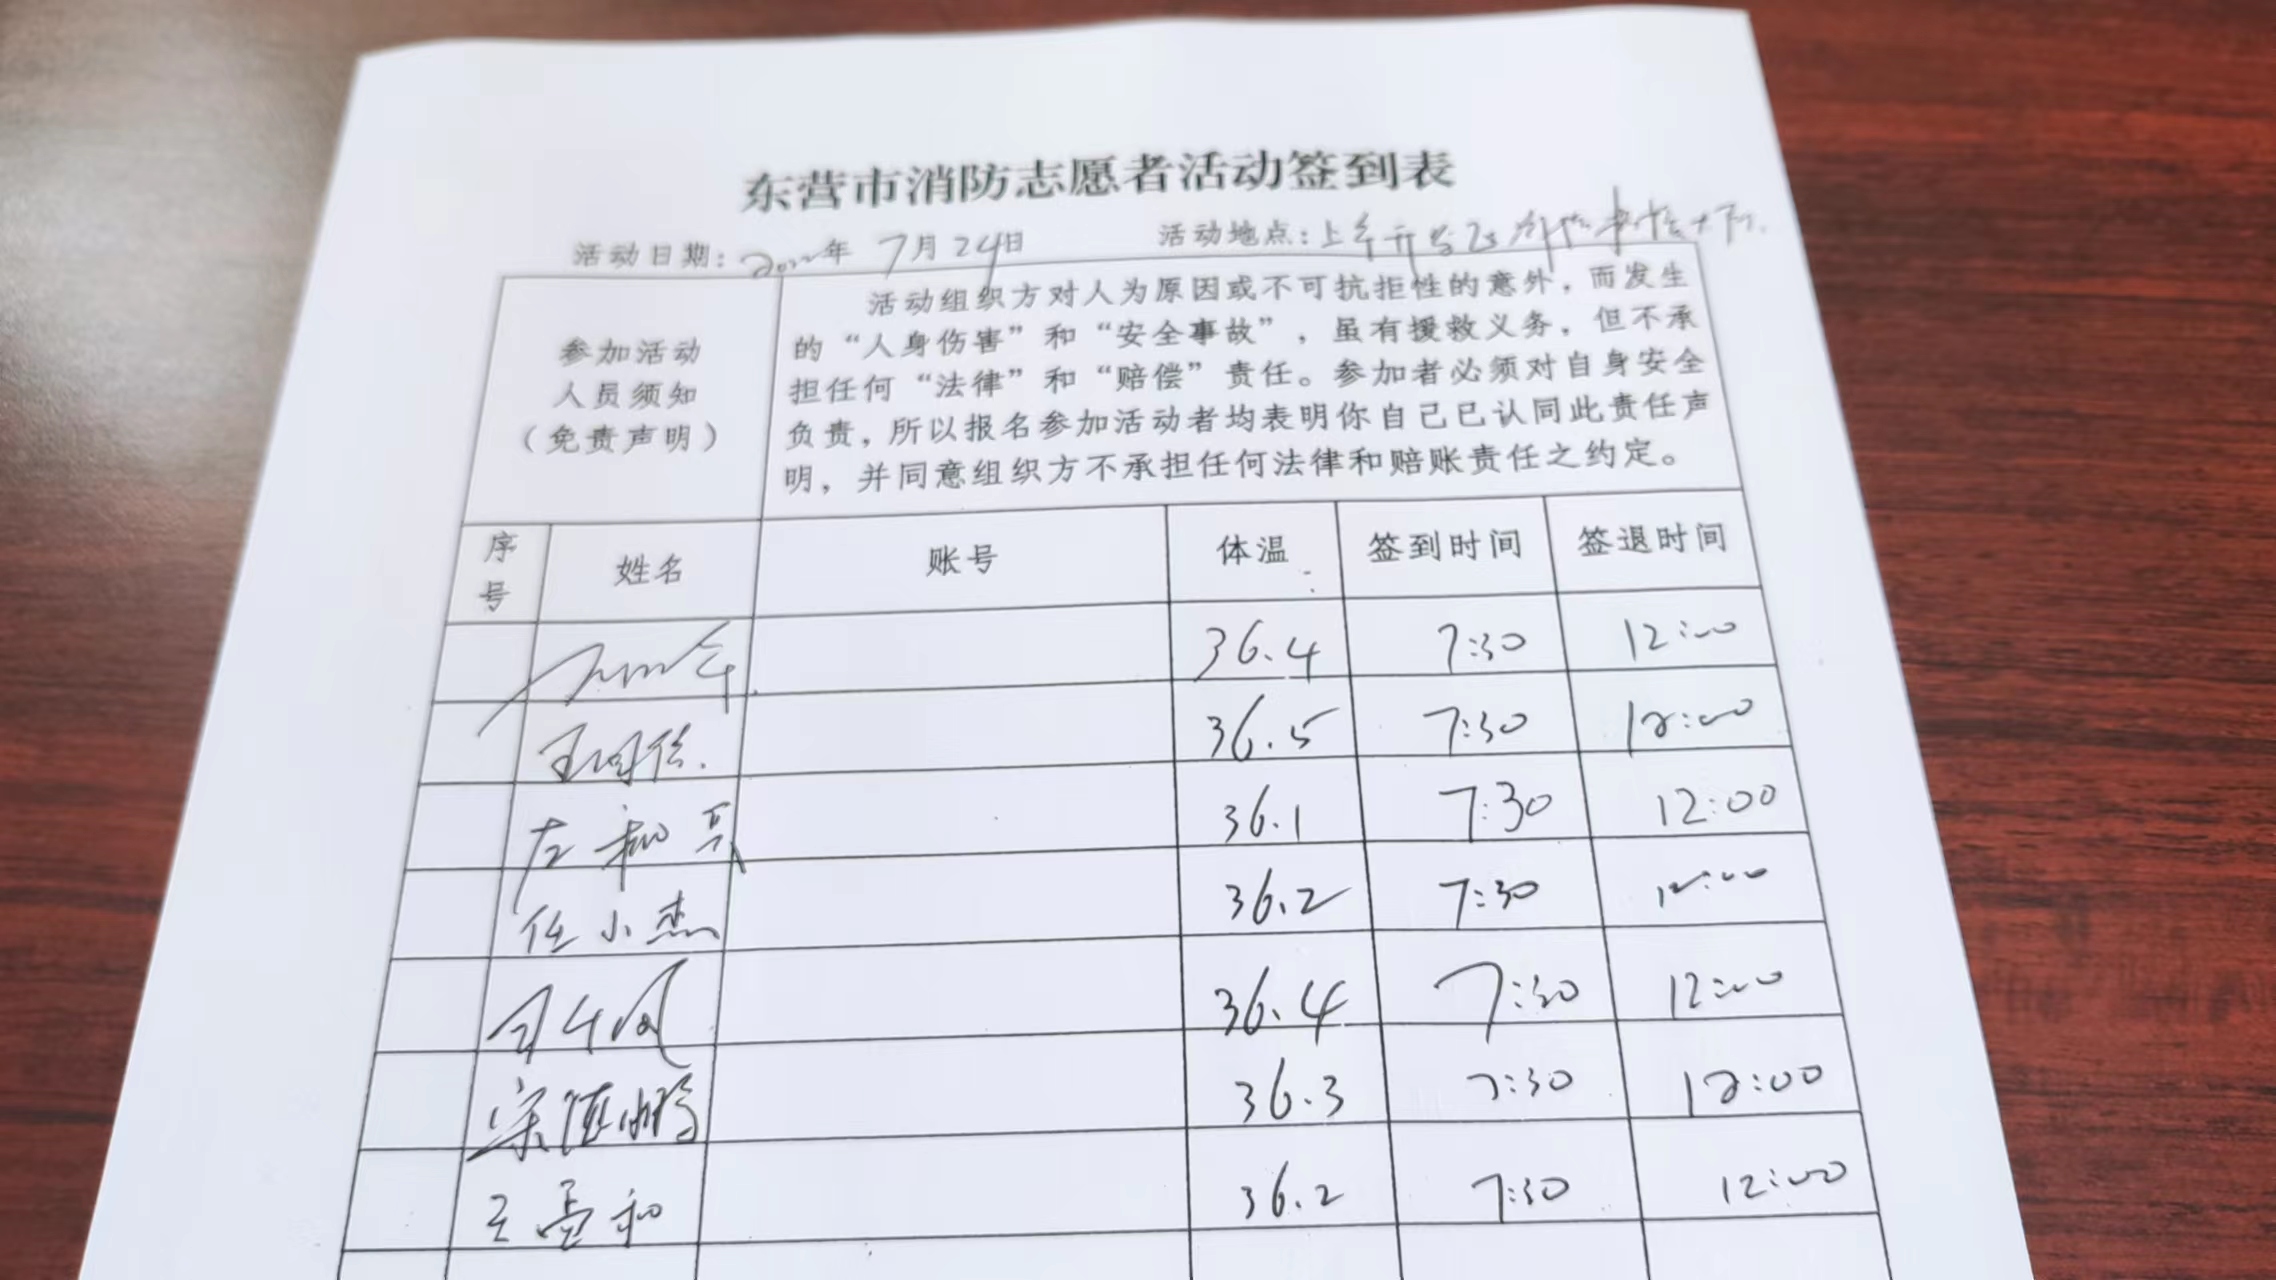 东营市消防志愿者活动签到表
活动日期：2022年 7月24日 活动地点：
参加活动
人员须知
（免责声明）
活动组织方对人为原因或不可抗拒性的意外，而发生
的“人身伤害”和“安全事故”，虽有援救义务，但不承
担任何“法律”和“赔偿”责任。参加者必须对自身安全
负责，所以报名参加活动者均表明你自己已认同此责任声
明，并同意组织方不承担任何法律和赔账责任之约定。
序号 姓名 账号 体温 签到时间 签退时间
36.4 7:30 12:00
36.5 7:30 12:00
36.1 7:30 12:00
任小杰 36.2 7:30 12:00
36.4 7:30 12:00
36.3 7:30 12:00
36.2 7:30 12:00